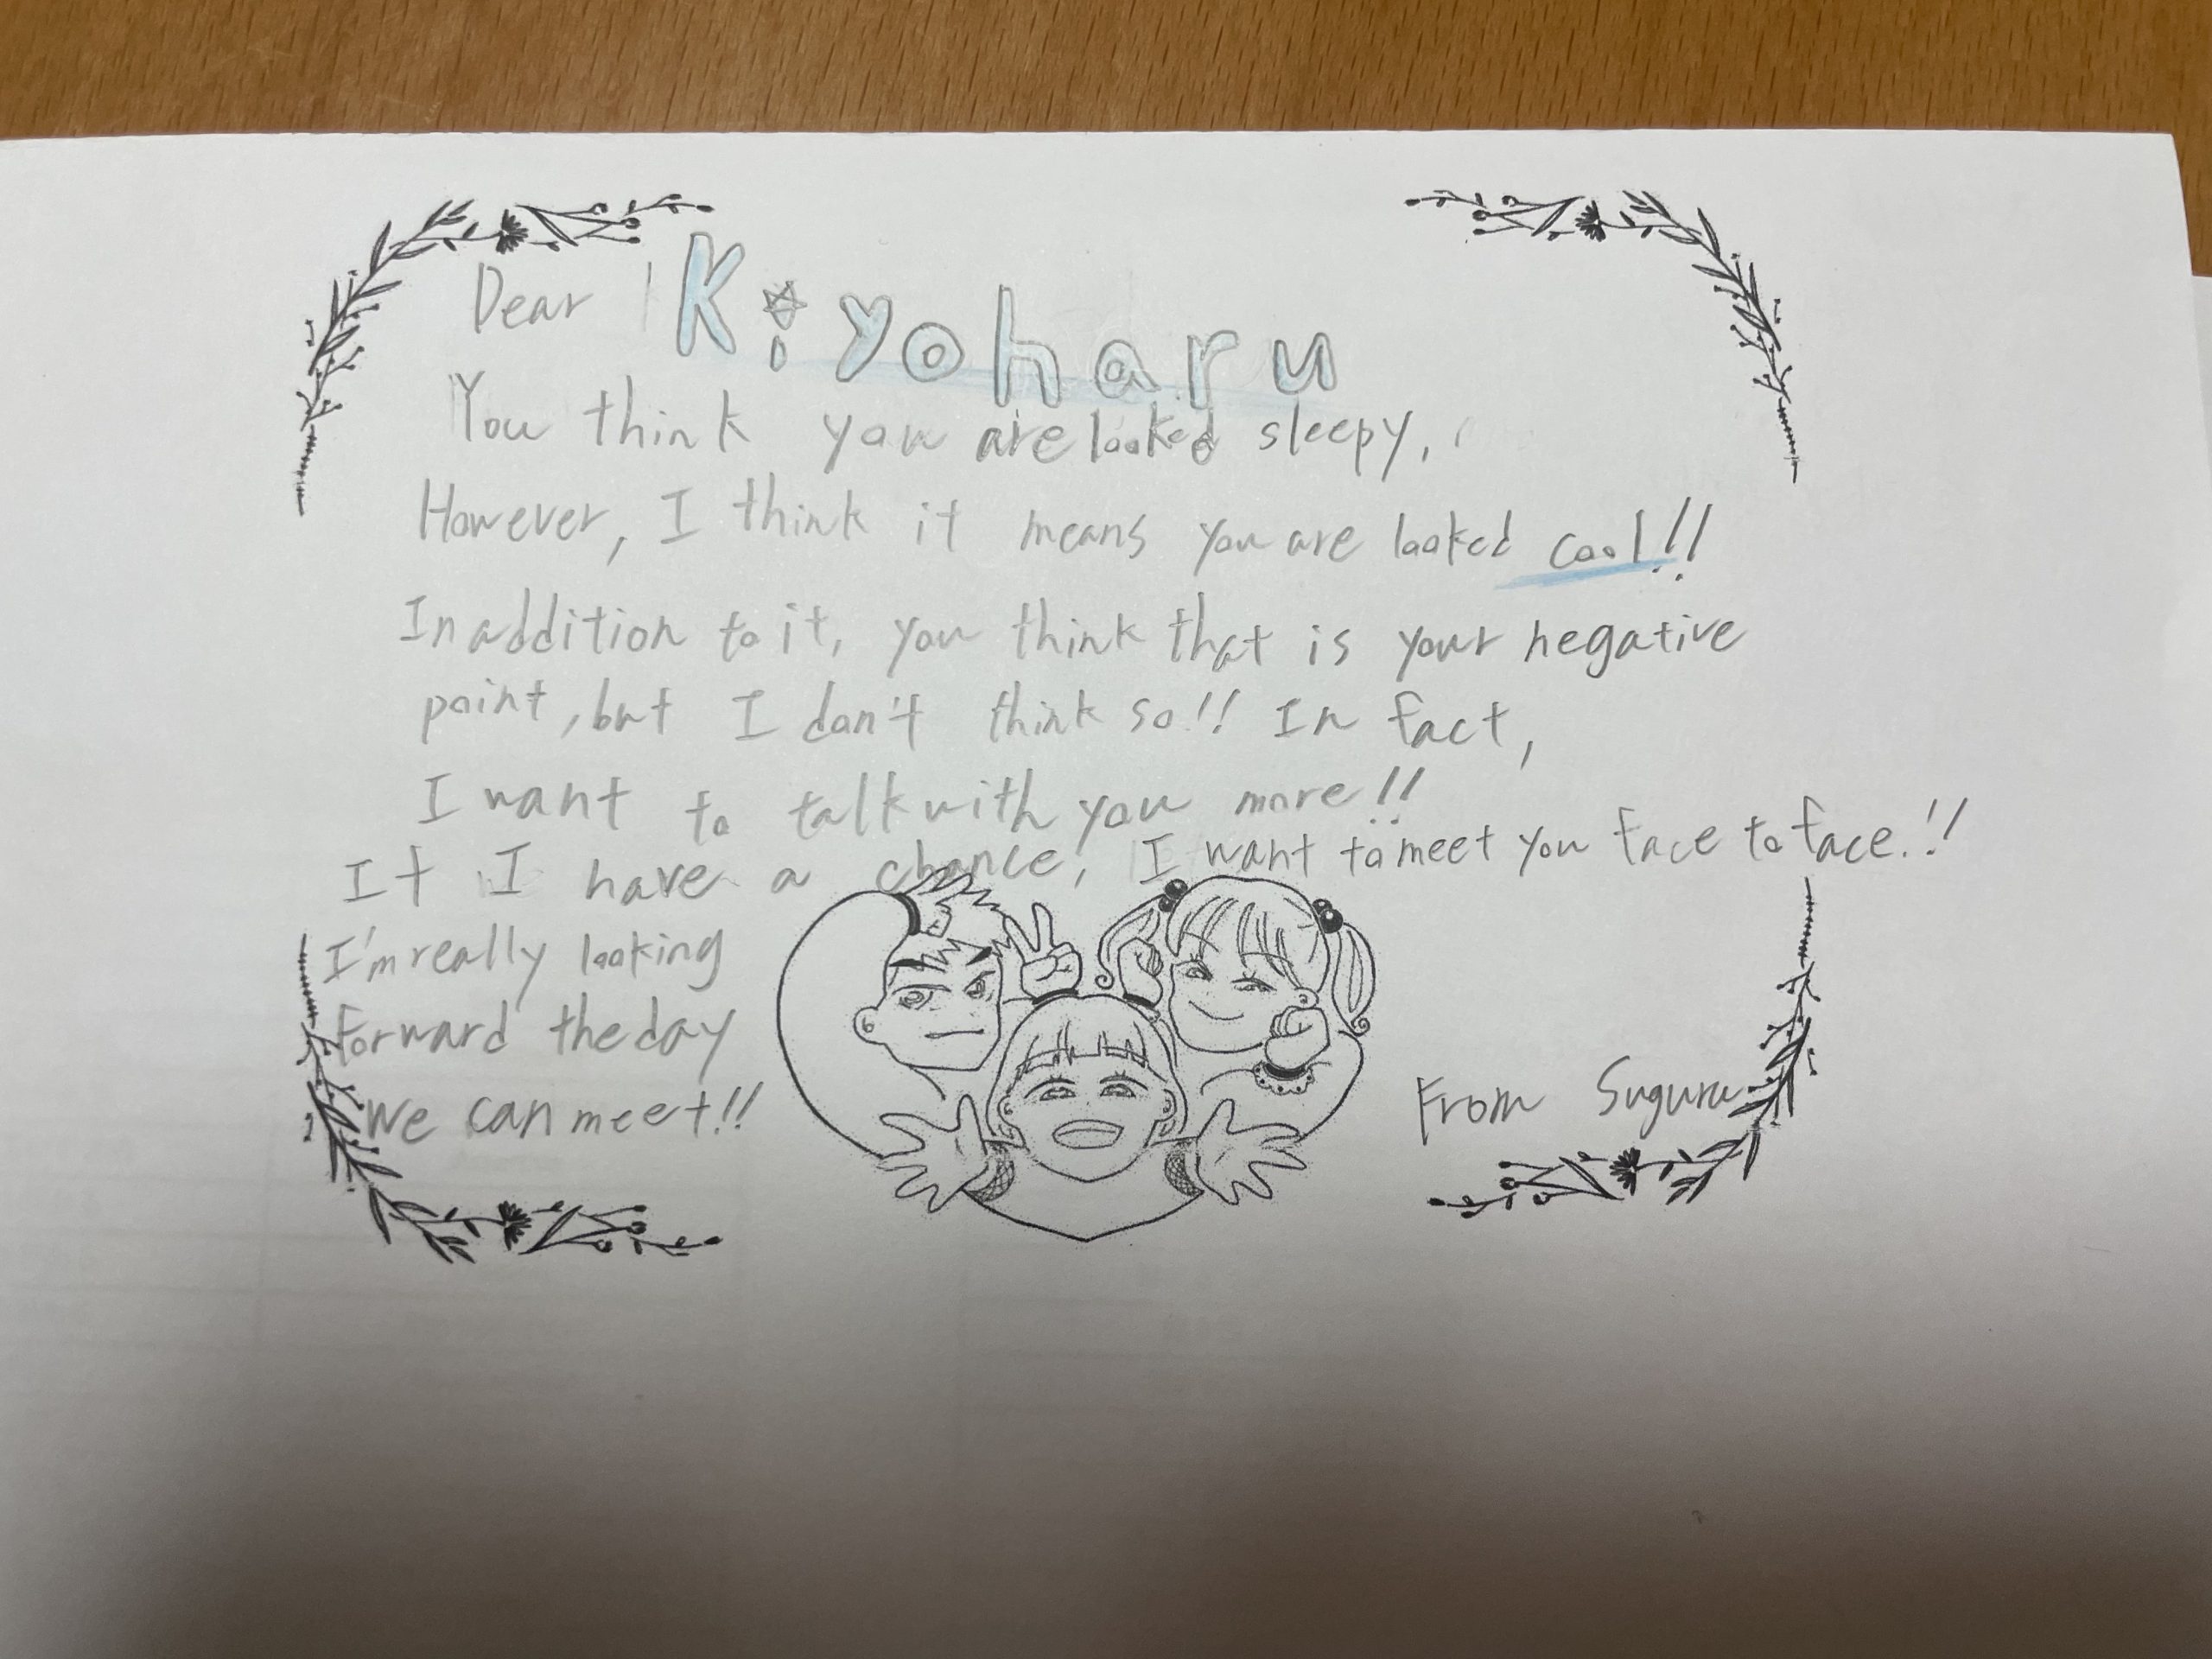 Dear Kiyoharu
You think you are looked sleepy,
However, I think it means you are looked cool!!
In addition to it, you think that is your negative
point, but I don't think so!! In fact,
I want to talk with you more!!
If I have a chance, I want to meet you face to face.!!
I'm really looking
forward the day
we can meet!!
From Suguru